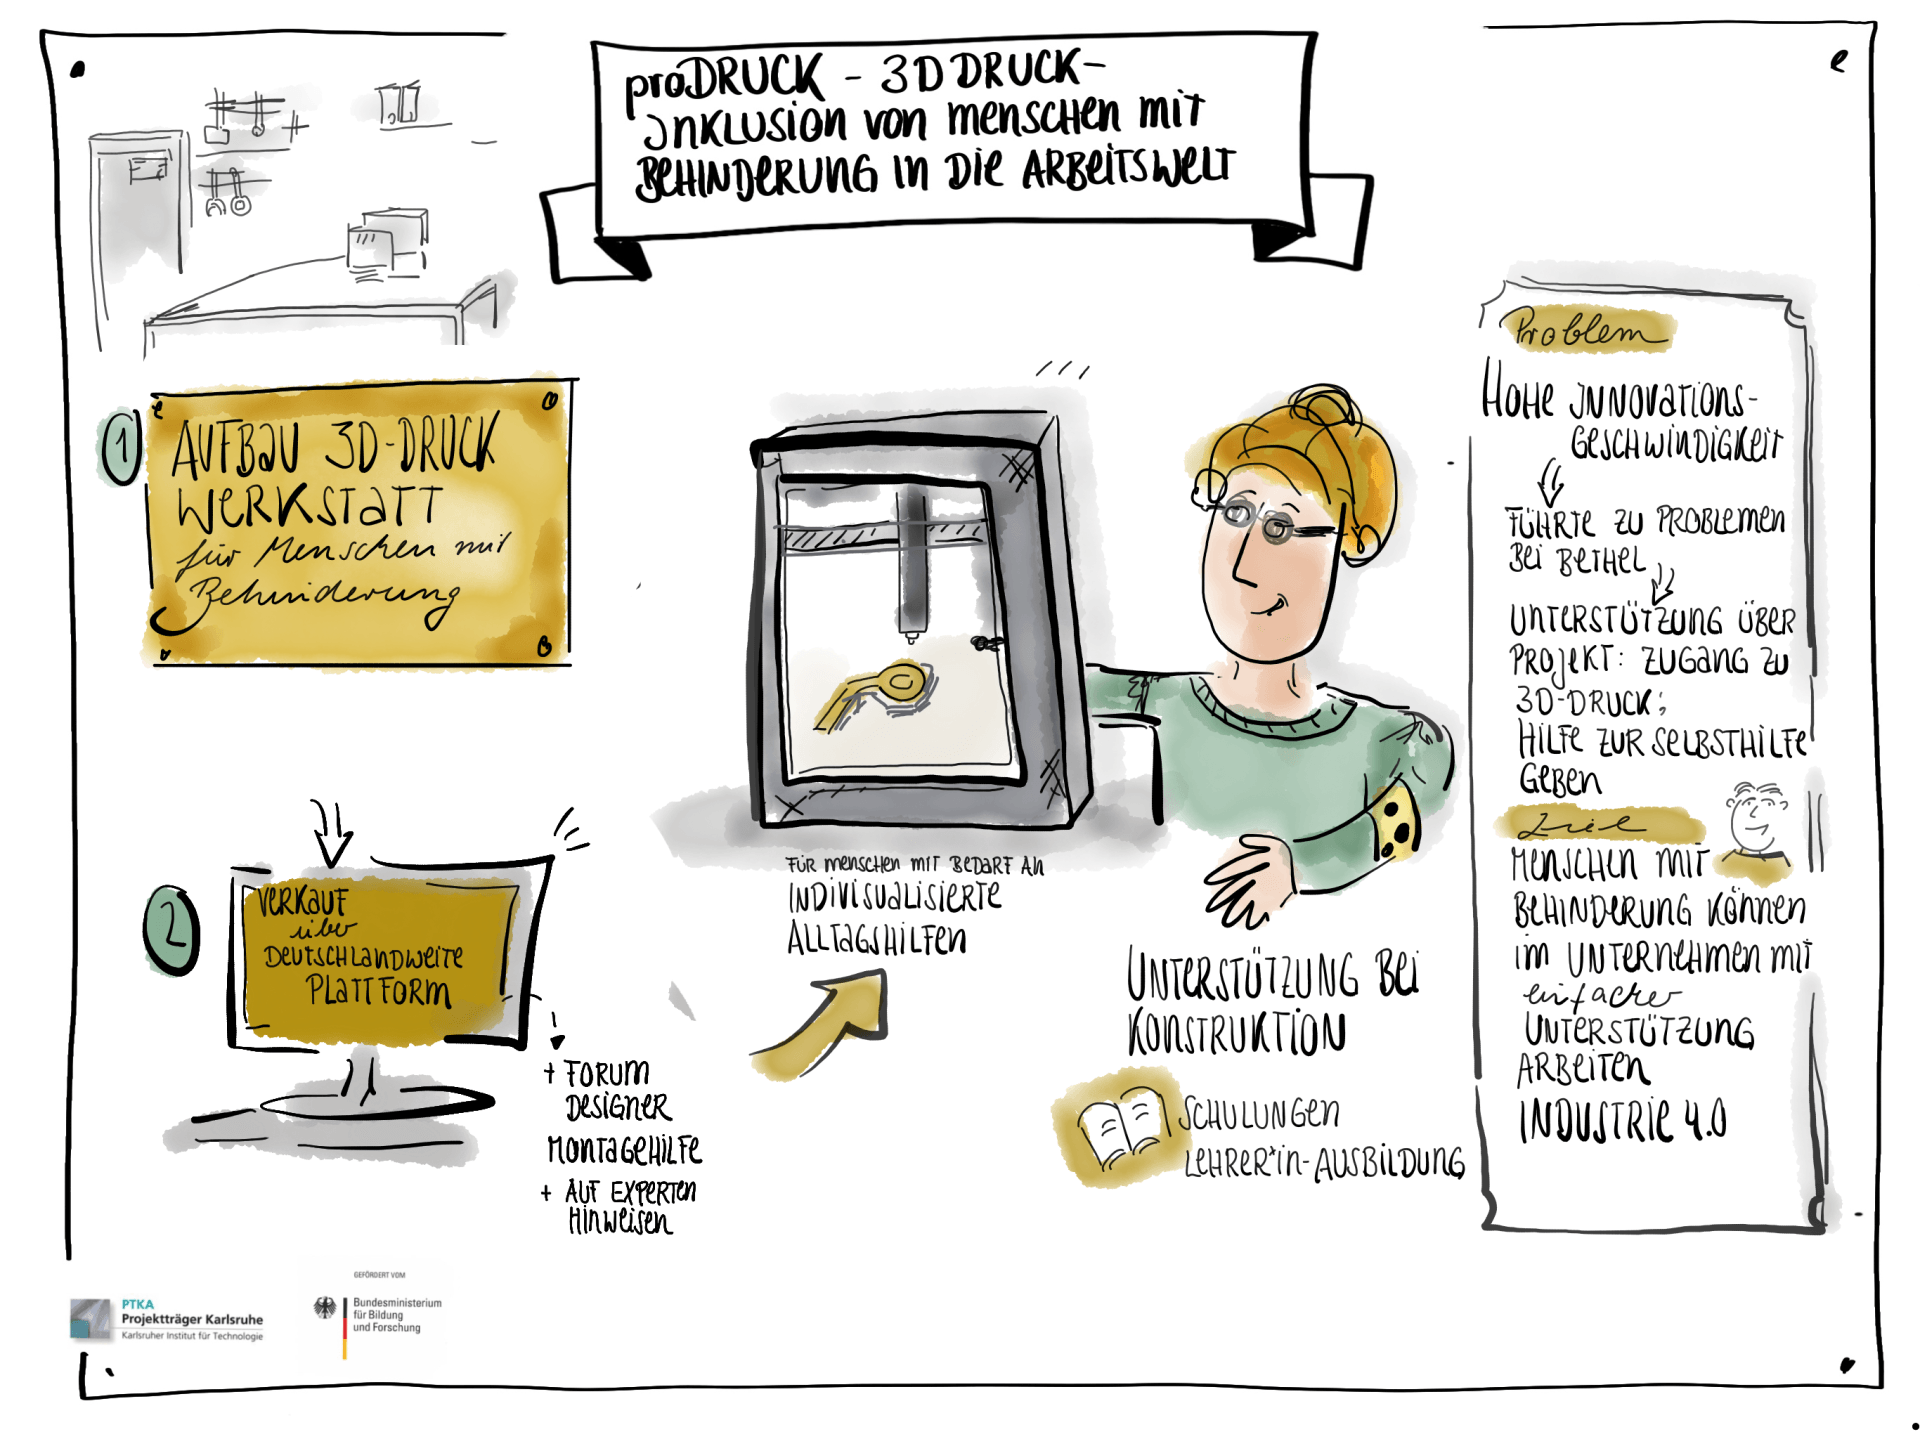 proDRUCK - 3D DRUCK-
INKLUSION VON MENSCHEN MIT
BEHINDERUNG IN DIE ARBEITSWELT
1
AUFBAU 3D-DRUCK
WERKSTATT
für Menschen mit
Behinderung
2
VERKAUF
über
DEUTSCHLANDWEITE
PLATTFORM
+ FORUM
DESIGNER
MONTAGEHILFE
+ AUF EXPERTEN
HINWEISEN
FÜR MENSCHEN MIT BEDARF AN
INDIVISUALISIERTE
ALLTAGSHILFEN
UNTERSTÜTZUNG BEI
KONSTRUKTION
SCHULUNGEN
LEHRER*IN-AUSBILDUNG
Problem
HOHE INNOVATIONS-
GESCHWINDIGKEIT
FÜHRTE ZU PROBLEMEN
BEI BETHEL
UNTERSTÜTZUNG ÜBER
PROJEKT: ZUGANG ZU
3D-DRUCK;
HILFE ZUR SELBSTHILFE
GEBEN
Ziel
MENSCHEN MIT
BEHINDERUNG KÖNNEN
IM UNTERNEHMEN MIT
einfacher
UNTERSTÜTZUNG
ARBEITEN
INDUSTRIE 4.0
PTKA
Projektträger Karlsruhe
Karlsruher Institut für Technologie
GEFÖRDERT VOM
Bundesministerium
für Bildung
und Forschung